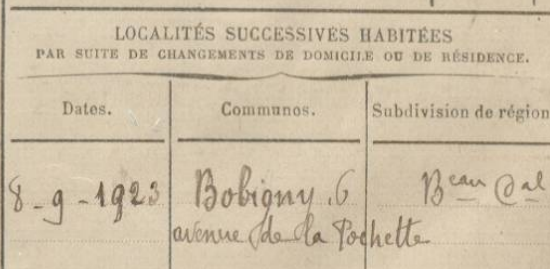 LOCALITÉS SUCCESSIVES HABITÉES
PAR SUITE DE CHANGEMENTS DE DOMICILE OU DE RÉSIDENCE.
Dates. Communes. Subdivision de région
8-9-1923 Bobigny. 6 Beau Cal
avenue de la Pochette